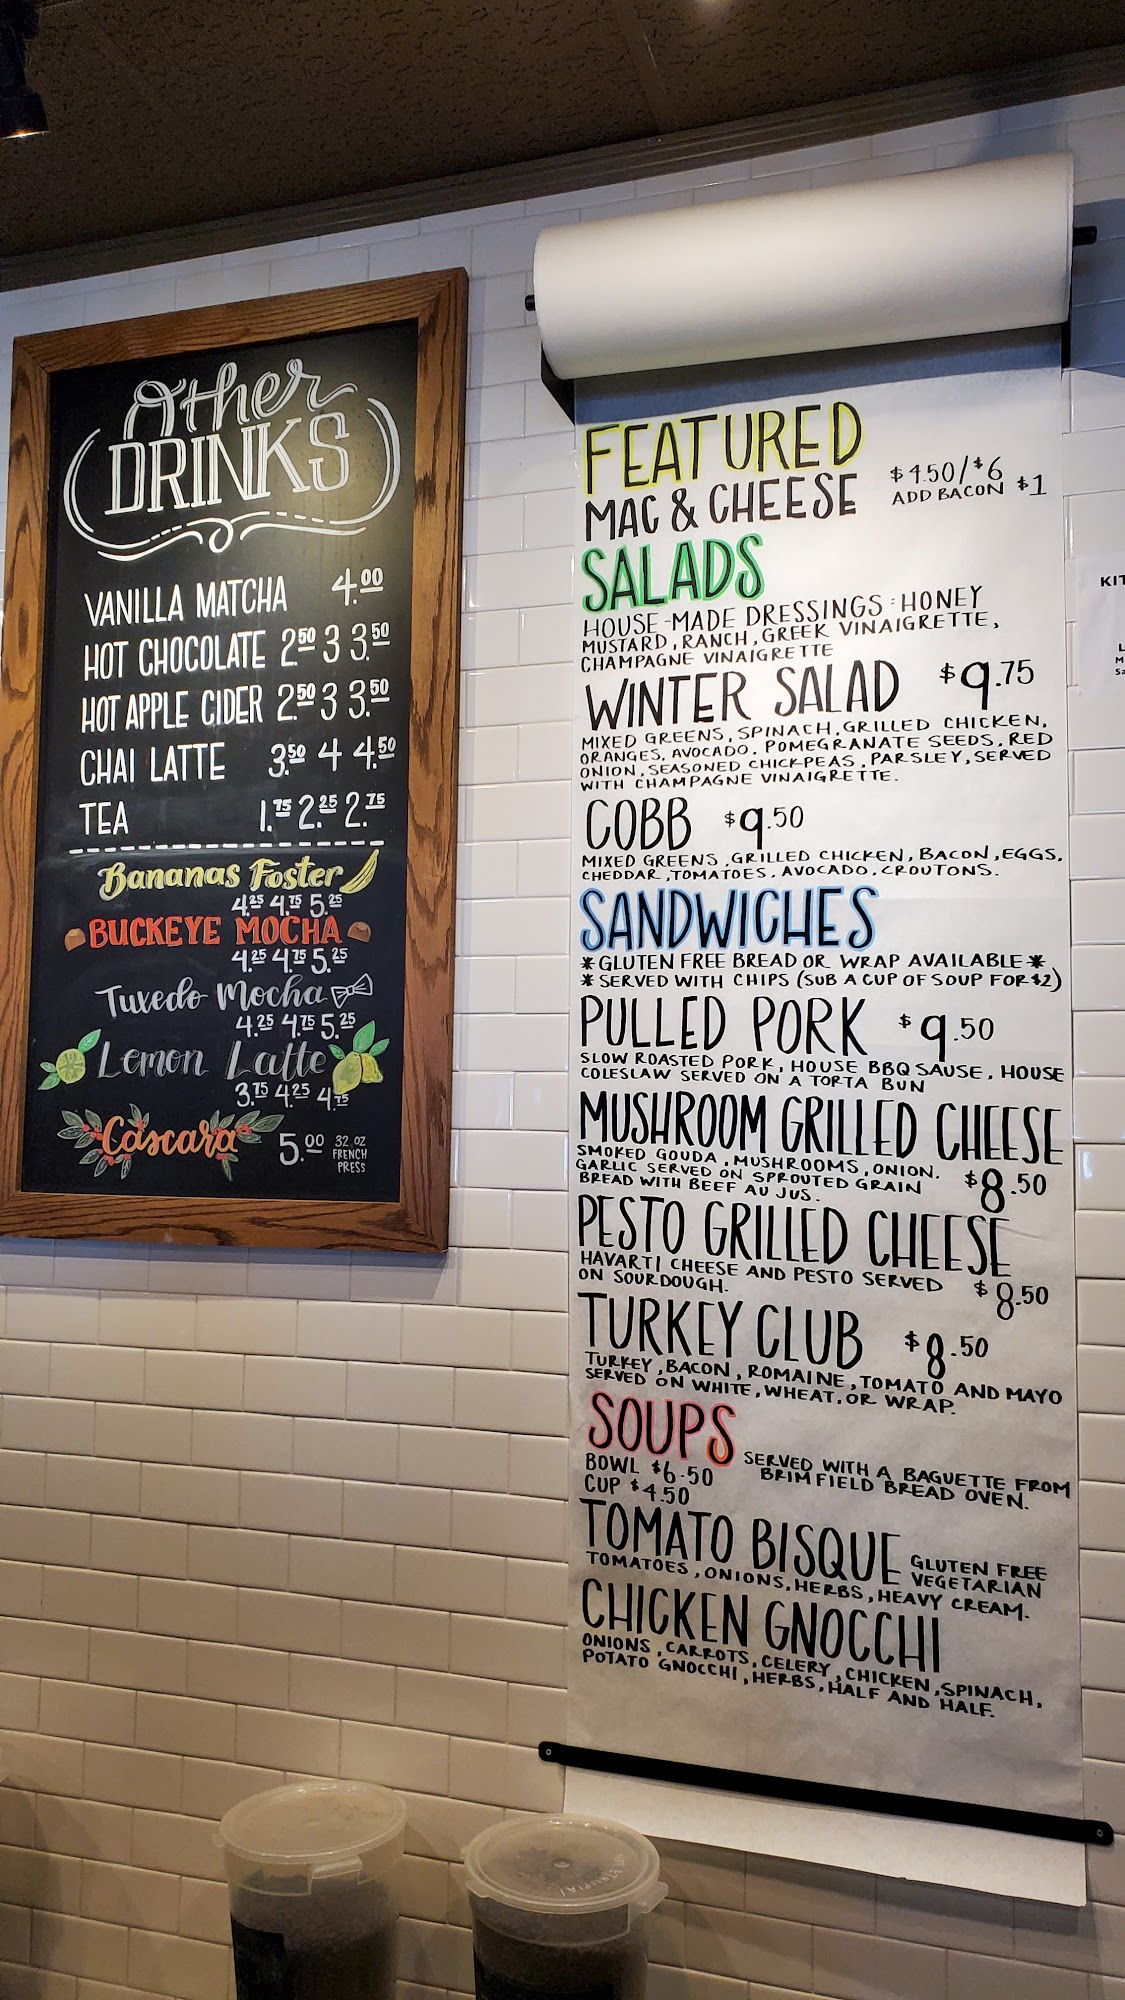 Other
DRINKS
VANILLA MATCHA 4.00
HOT CHOCOLATE 2.50 3 3.50
HOT APPLE CIDER 2.50 3 3.50
CHAI LATTE 3.50 4 4.50
TEA 1.75 2.25 2.75
Bananas Foster
4.25 4.75 5.25
BUCKEYE MOCHA
4.25 4.75 5.25
Tuxedo Mocha
4.25 4.75 5.25
Lemon Latte
3.75 4.25 4.75
Cascara 5.00 32 OZ
FRENCH
PRESS
FEATURED
MAC & CHEESE $4.50/$6
ADD BACON $1
SALADS
HOUSE-MADE DRESSINGS: HONEY
MUSTARD, RANCH, GREEK VINAIGRETTE,
CHAMPAGNE VINAIGRETTE
WINTER SALAD $9.75
MIXED GREENS, SPINACH, GRILLED CHICKEN,
ORANGES, AVOCADO, POMEGRANATE SEEDS, RED
ONION, SEASONED CHICKPEAS, PARSLEY, SERVED
WITH CHAMPAGNE VINAIGRETTE.
COBB $9.50
MIXED GREENS, GRILLED CHICKEN, BACON, EGGS,
CHEDDAR, TOMATOES, AVOCADO, CROUTONS.
SANDWICHES
*GLUTEN FREE BREAD OR WRAP AVAILABLE*
*SERVED WITH CHIPS (SUB A CUP OF SOUP FOR $2)
PULLED PORK $9.50
SLOW ROASTED PORK, HOUSE BBQ SAUSE, HOUSE
COLESLAW SERVED ON A TORTA BUN
MUSHROOM GRILLED CHEESE
SMOKED GOUDA, MUSHROOMS, ONION,
GARLIC SERVED ON SPROUTED GRAIN
BREAD WITH BEEF AU JUS. $8.50
PESTO GRILLED CHEESE
HAVARTI CHEESE AND PESTO SERVED
ON SOURDOUGH. $8.50
TURKEY CLUB $8.50
TURKEY, BACON, ROMAINE, TOMATO AND MAYO
SERVED ON WHITE, WHEAT, OR WRAP.
SOUPS
BOWL $6.50
CUP $4.50
SERVED WITH A BAGUETTE FROM
BRIMFIELD BREAD OVEN.
TOMATO BISQUE GLUTEN FREE
VEGETARIAN
TOMATOES, ONIONS, HERBS, HEAVY CREAM.
CHICKEN GNOCCHI
ONIONS, CARROTS, CELERY, CHICKEN, SPINACH,
POTATO GNOCCHI, HERBS, HALF AND HALF.